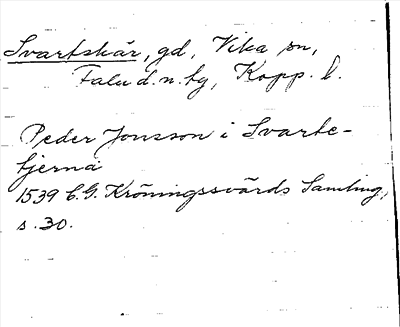 Svartskär, gd, Vika sn,
Falu d.n. tg, Kopp. l.
Peder Jonsson i Svarte-
tjernä
1539 C.G. Kröningssvärds Samling,
s. 30.